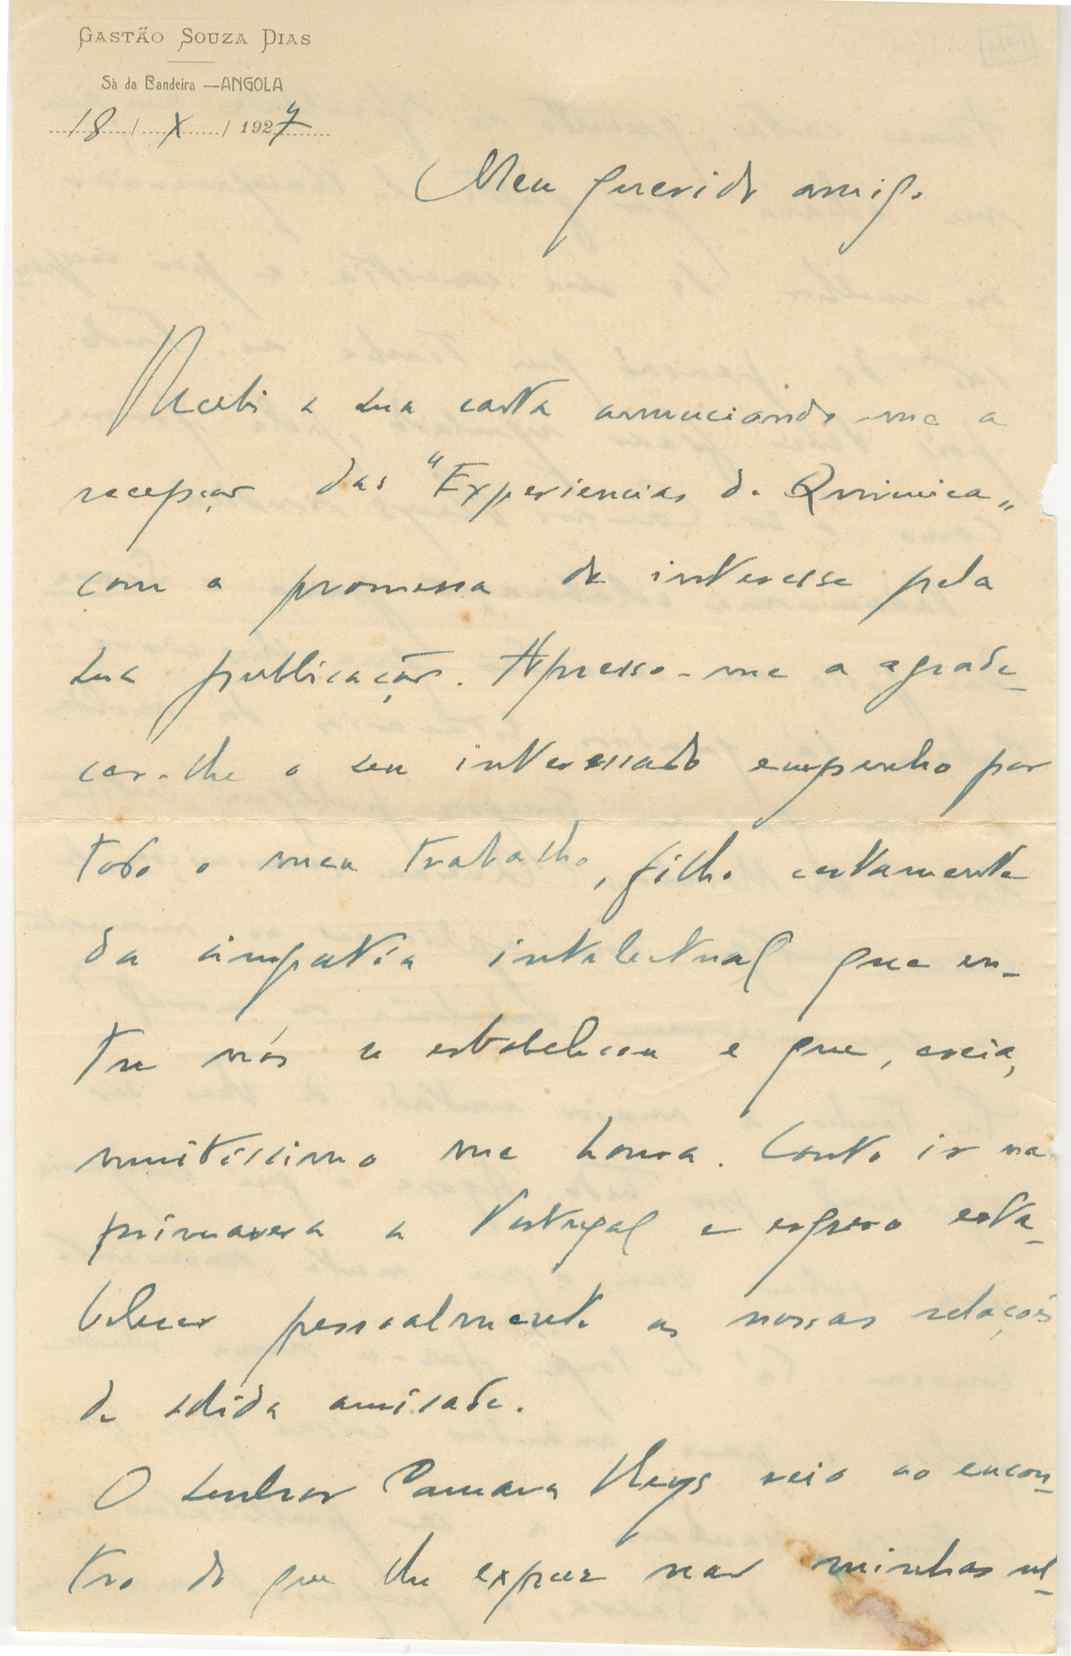 GASTÃO SOUZA DIAS
Sá da Bandeira — ANGOLA
18 / X / 1927
Meu querido amigo
Recebi a sua carta annunciando-me a
recepção das "Experiencias de Quimica"
com a promessa de interesse pela
sua publicação. Apresso-me a agrade-
cer-lhe o seu interessado empenho por
todo o meu trabalho, filho certamente
da simpatia intelectual que en-
tre nós se estabeleceu e que, creia,
muitissimo me honra. Conto ir na
primavera a Portugal e espero esta-
belecer pessoalmente as nossas relações
de sólida amisade.
O senhor Camara Reys veio ao encon-
tro do que lhe expuz nas minhas ul-